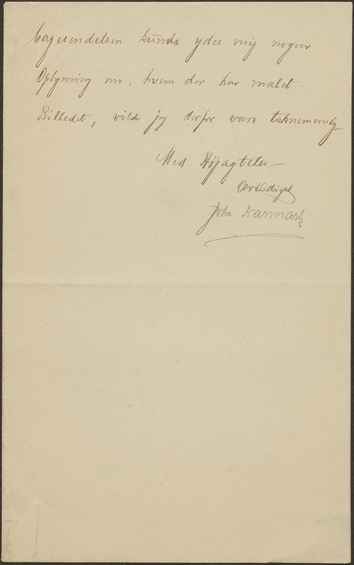 kunde yde mig nogen
Oplysning om, hvem der har malet
Billedet, vilde jeg derfor være taknemmelig
Med Højagtelse
Ærbødigst
John